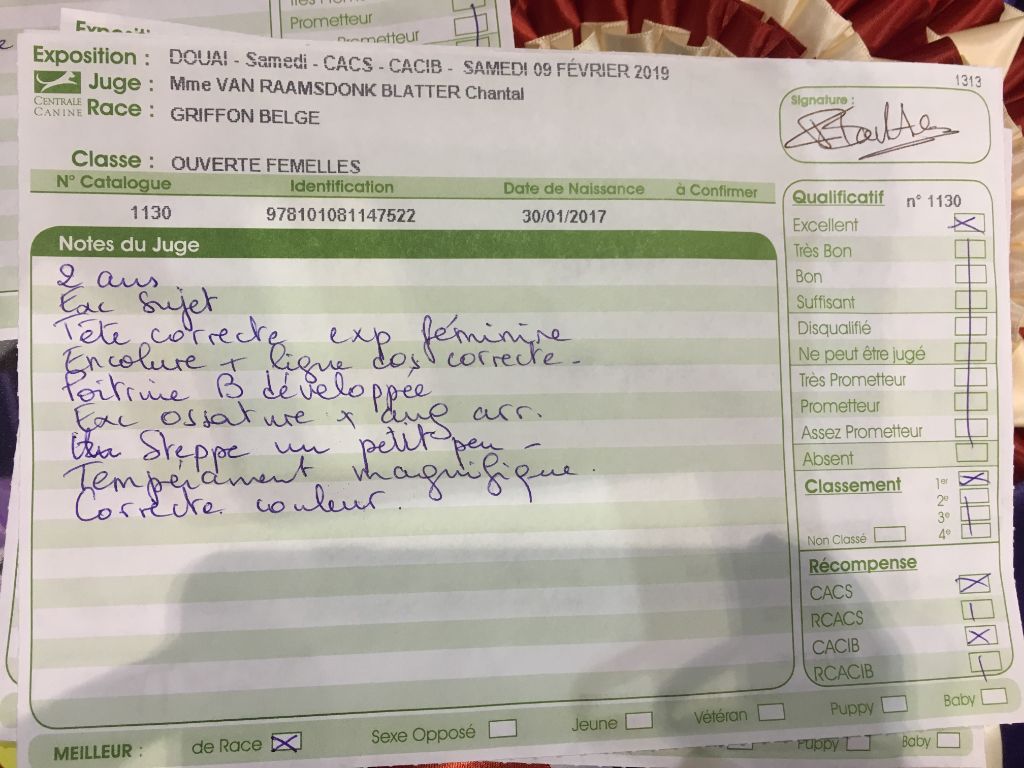 Prometteur
Exposition : DOUAI - Samedi - CACS - CACIB - SAMEDI 09 FÉVRIER 2019
1313
CENTRALE CANINE
Juge : Mme VAN RAAMSDONK BLATTER Chantal
Race : GRIFFON BELGE
Signature :
Classe : OUVERTE FEMELLES
N° Catalogue Identification Date de Naissance à Confirmer
1130 978101081147522 30/01/2017
Notes du Juge
2 ans
Exc Sujet
Tête correcte exp féminine
Encolure + ligne dos correcte -
Poitrine B développée
Exc ossature x ang arr.
Steppe un petit peu -
Tempérament magnifique.
Correcte couleur.
Qualificatif n° 1130
Excellent
Très Bon
Bon
Suffisant
Disqualifié
Ne peut être jugé
Très Prometteur
Prometteur
Assez Prometteur
Absent
Classement 1er
2e
3e
Non Classé 4e
Récompense
CACS
RCACS
CACIB
RCACIB
MEILLEUR : de Race Sexe Opposé Jeune Vétéran Puppy Baby
Puppy Baby